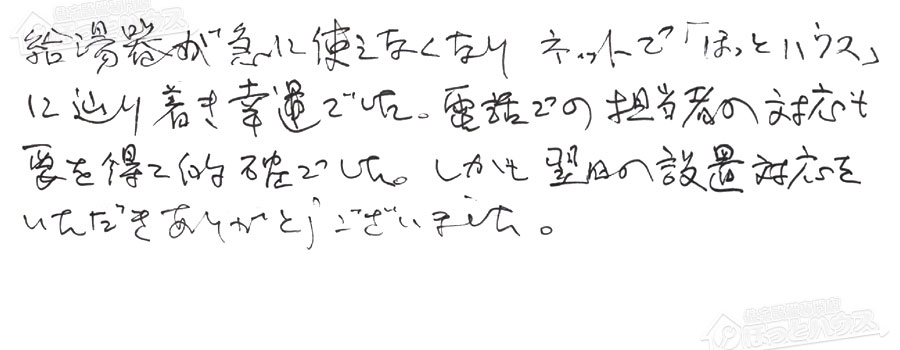 給湯器が急に使えなくなり ネットで「ほっとハウス」
に辿り着き幸運でした。電話での担当者の対応も
要を得て的確でした。しかも翌日の設置対応を
いただきありがとうございました。
ほっとハウス